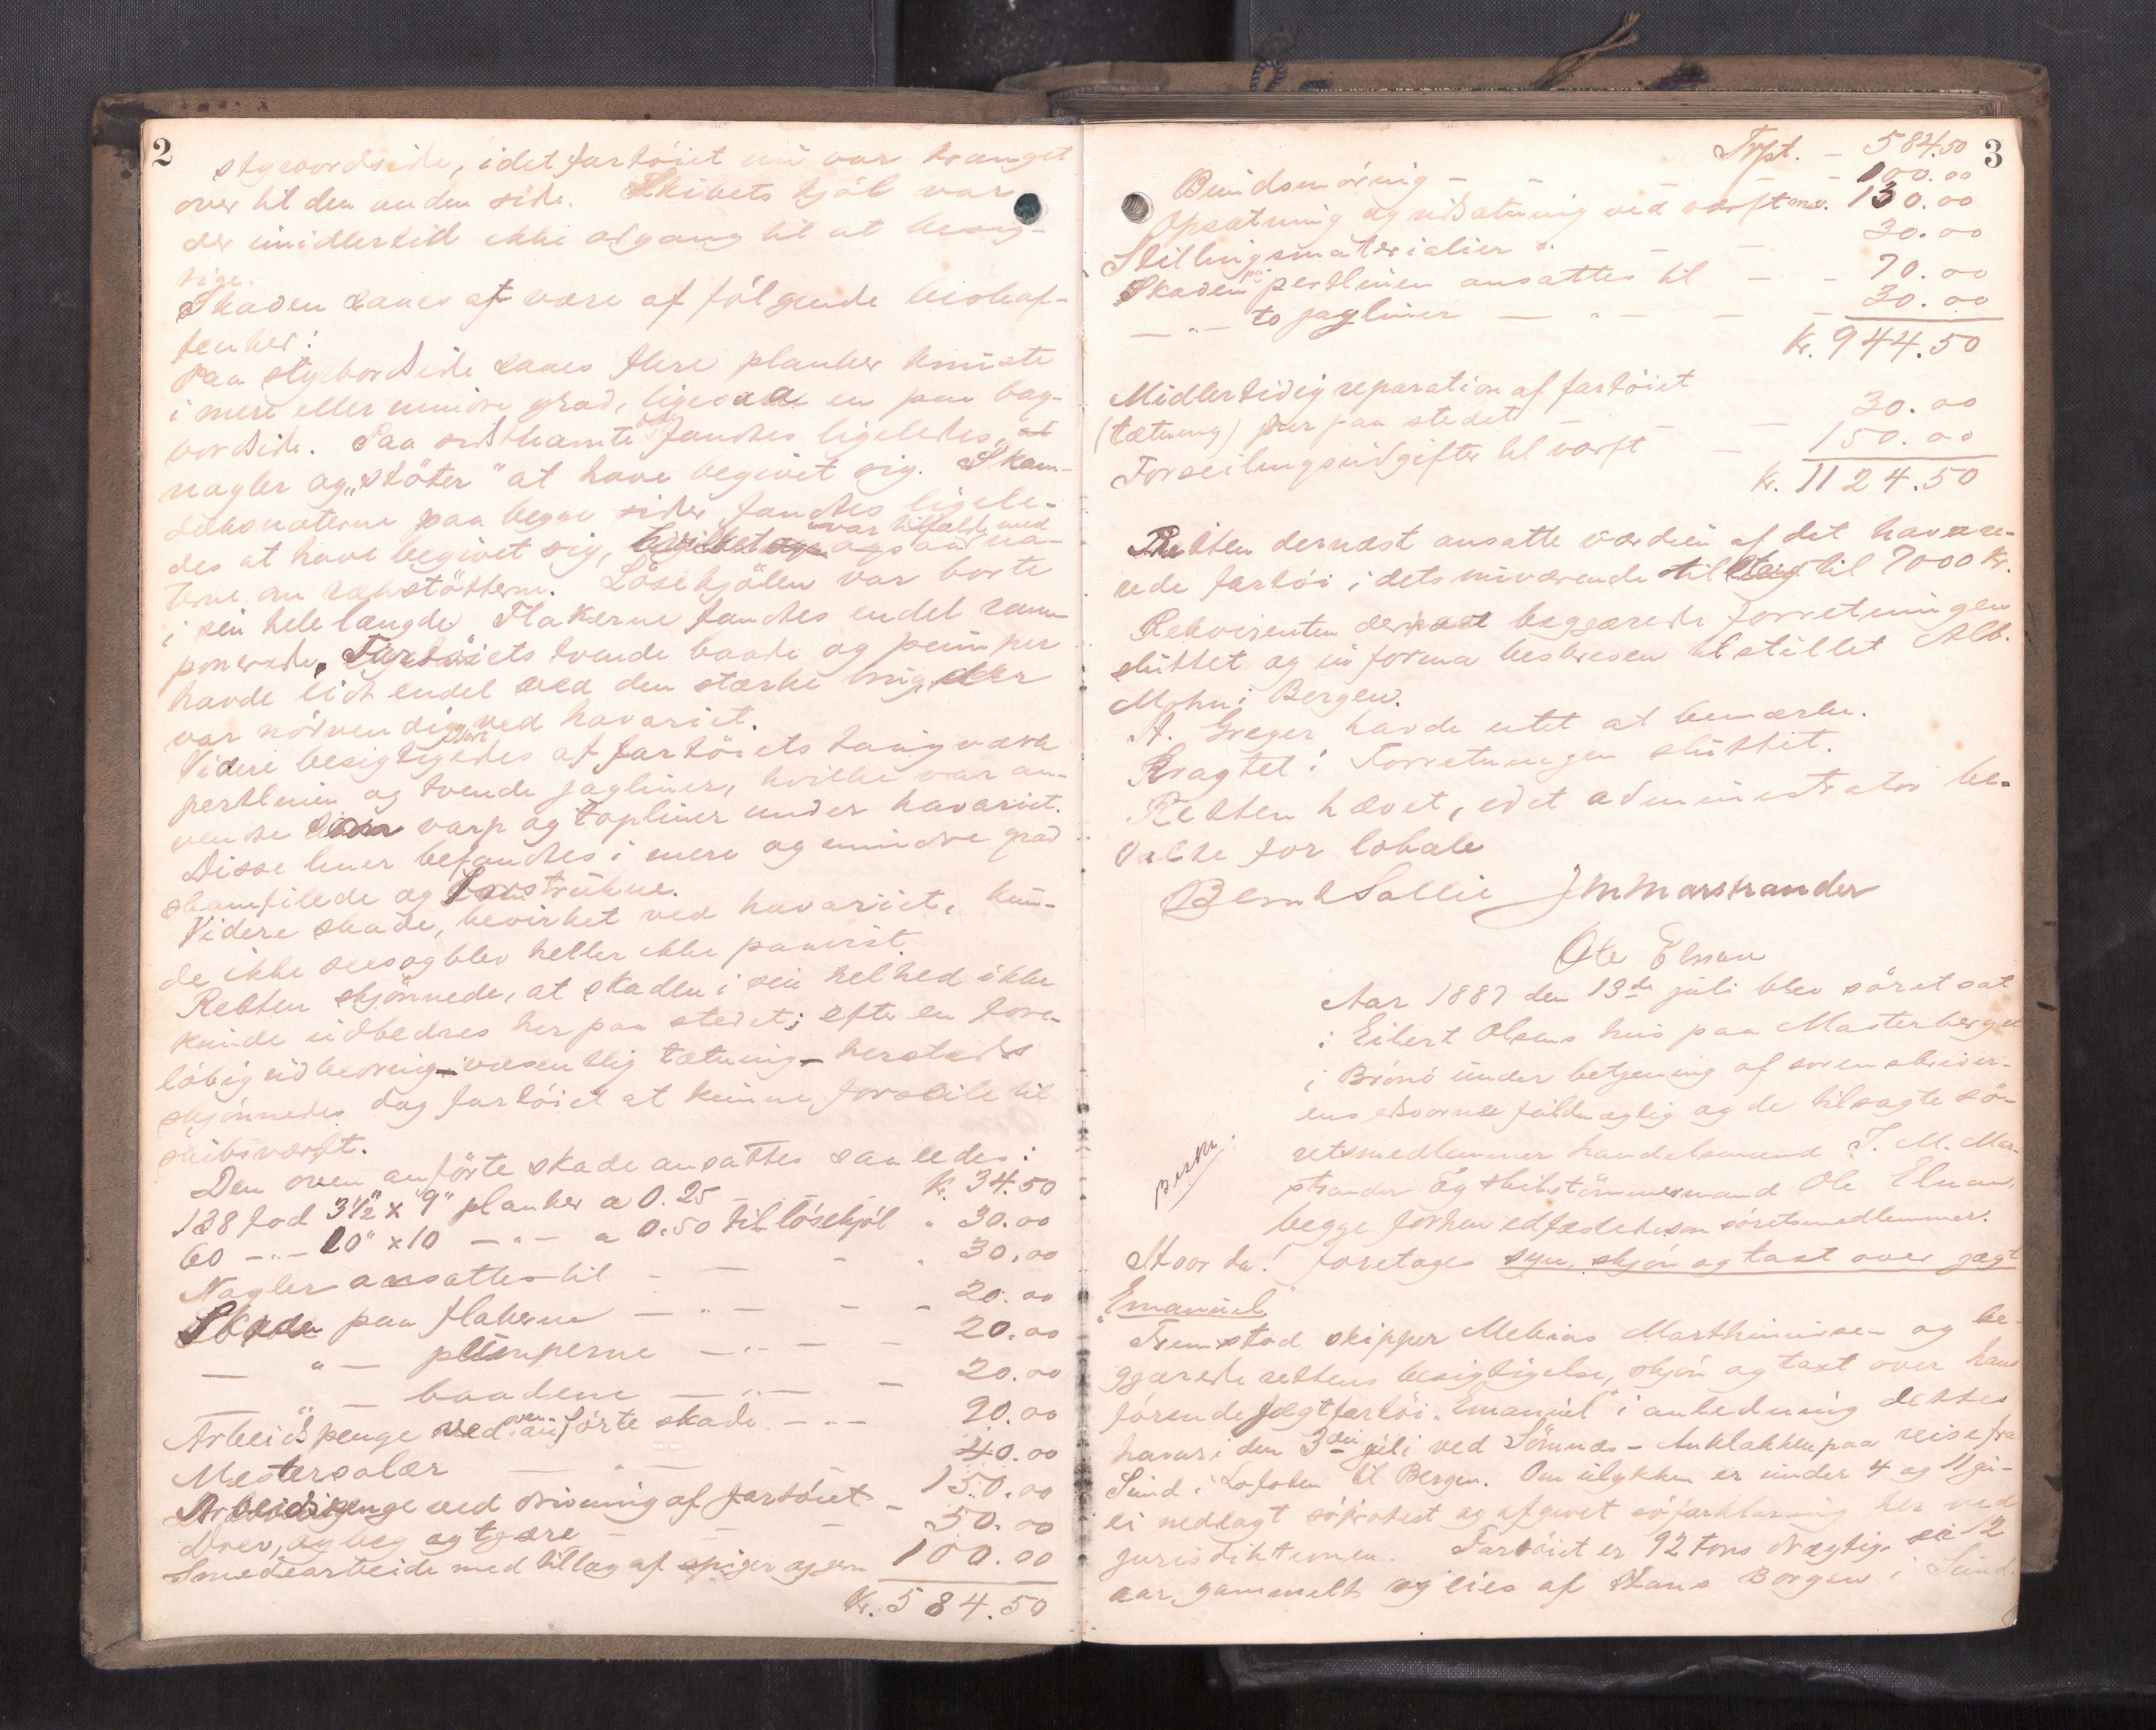 2
styrbordside, idet fartöiet nu var trænget
over til den anden side. Skibets kjöl var
der imidlertid ikke adgang til at besig-
tige.
Skaden saaes at være af fölgende beskaf-
fenhed:
Paa styrbordside saaes flere planker knuste
i mere eller mindre grad, ligesaa en paa bag-
bordside. Paa sidstnævnte side fandtes ligeledes
nagler og "stöter" at have begivet sig. Skan-
dæksnaterne paa begge sider fandtes ligele-
des at have begivet sig, hvilket ogsaa var tilfælde med na-
terne om rækstötterne. Lösekjölen var borte
i sin hele længde. Flakerne fandtes endel ram-
ponerede. Fartöiets tvende baade og pumper
havde lidt endel ved den stærke brug, der
var nödvendig ved havariet.
Videre besigtigedes af fartöiets taugværk
pertlinen og tvende jagliner, hvilke var an-
vendte som varp og topliner under havariet.
Disse liner befandtes i mere og mindre grad
skamfilede og forstrukne.
Videre skade, bevirket ved havariet, kun-
de ikke sees og blev heller ikke paavist.
Retten skjönnede, at skaden i sin helhed ikke
kunde udbedres her paa stedet; efter en fore-
löbig udbedring - væsentlig tætning - hersteds
skjönnedes dog fartöiet at kunne forseile til
skibsværft.
Den oven anförte skade ansattes saaledes:
138 fod 3½" x 9" planker a 0.25 - kr. 34.50
60 -"- 10" x 10 -"- a 0.50 til lösekjöl " 30.00
Nagler ansattes til - - - " 30.00
Skade paa flakerne -"- - - 20.00
- " - pumperne -"- - - 20.00
- " - baadene -"- - 20.00
Arbeidspenge ved oven anförte skade -"- 90.00
Mestersalær - " - 40.00
Arbeidspenge ved drivning af fartöiet - 150.00
Drev, og beg og tjære - - - 50.00
Smedearbeide med tillæg af spiger og jern 100.00
Kr. 584.50
3
Trpt. - 584.50
Bundsmöring - - - 100.00
Opsætning og udsætning ved værft m.v. 130.00
Stillingsmaterialier - - 30.00
Skaden paa pertlinen ansattes til - - 70.00
-"- to jagliner - " - - - 30.00
Kr. 944.50
Midlertidig reparation af fartöiet
(tætning) her paa stedet - - 30.00
Forseilingsudgifter til værft - 150.00
Kr. 1124.50
Retten dernæst ansatte værdien af det havare-
rede fartöi i dets nuværende tilstand til 7000 kr.
Rekvirenten dernæst begjærede forretningen
sluttet og in forma beskreven tilstillet Alb.
Mohn i Bergen.
A. Greger havde intet at bemærke.
Eragtet: Forretningen sluttet.
Retten hævet, idet administrator be-
talte for lokale
Bernt Sollie JMMarstrander
Ole Elnan
Aar 1887 den 13de juli blev söret sat
i Eilert Olsens hus paa Masterberget
i Brönö under betjening af sorenskriver-
ens edsvorne fuldmægtig og de tilsagte sö-
retsmedlemmer handelsmand J. M. Mar-
strander og skibstömmermand Ole Elnan,
begge forhen edfæstede som söretsmedlemmer.
Beskr.
Hvor da! foretoges syn, skjön og taxt over jægt
"Emanuel".
Fremstod skipper Mekias Marthinussen og be-
gjærede rettens besigtigelse, skjön og taxt over hans
förende jægtfartöi "Emanuel" i anledning dettes
havari den 3die juli ved Sömnes - paa reise fra
Sund i Lofoten til Bergen. Om ulykken er under 4 og 11 ju-
li nedlagt söprotest og afgivet söforklaring her ved
jurisdiktionen. Fartöiet er 92 tons drægtig, 12
aar gammelt og eies af Hans Borgen i Sund.